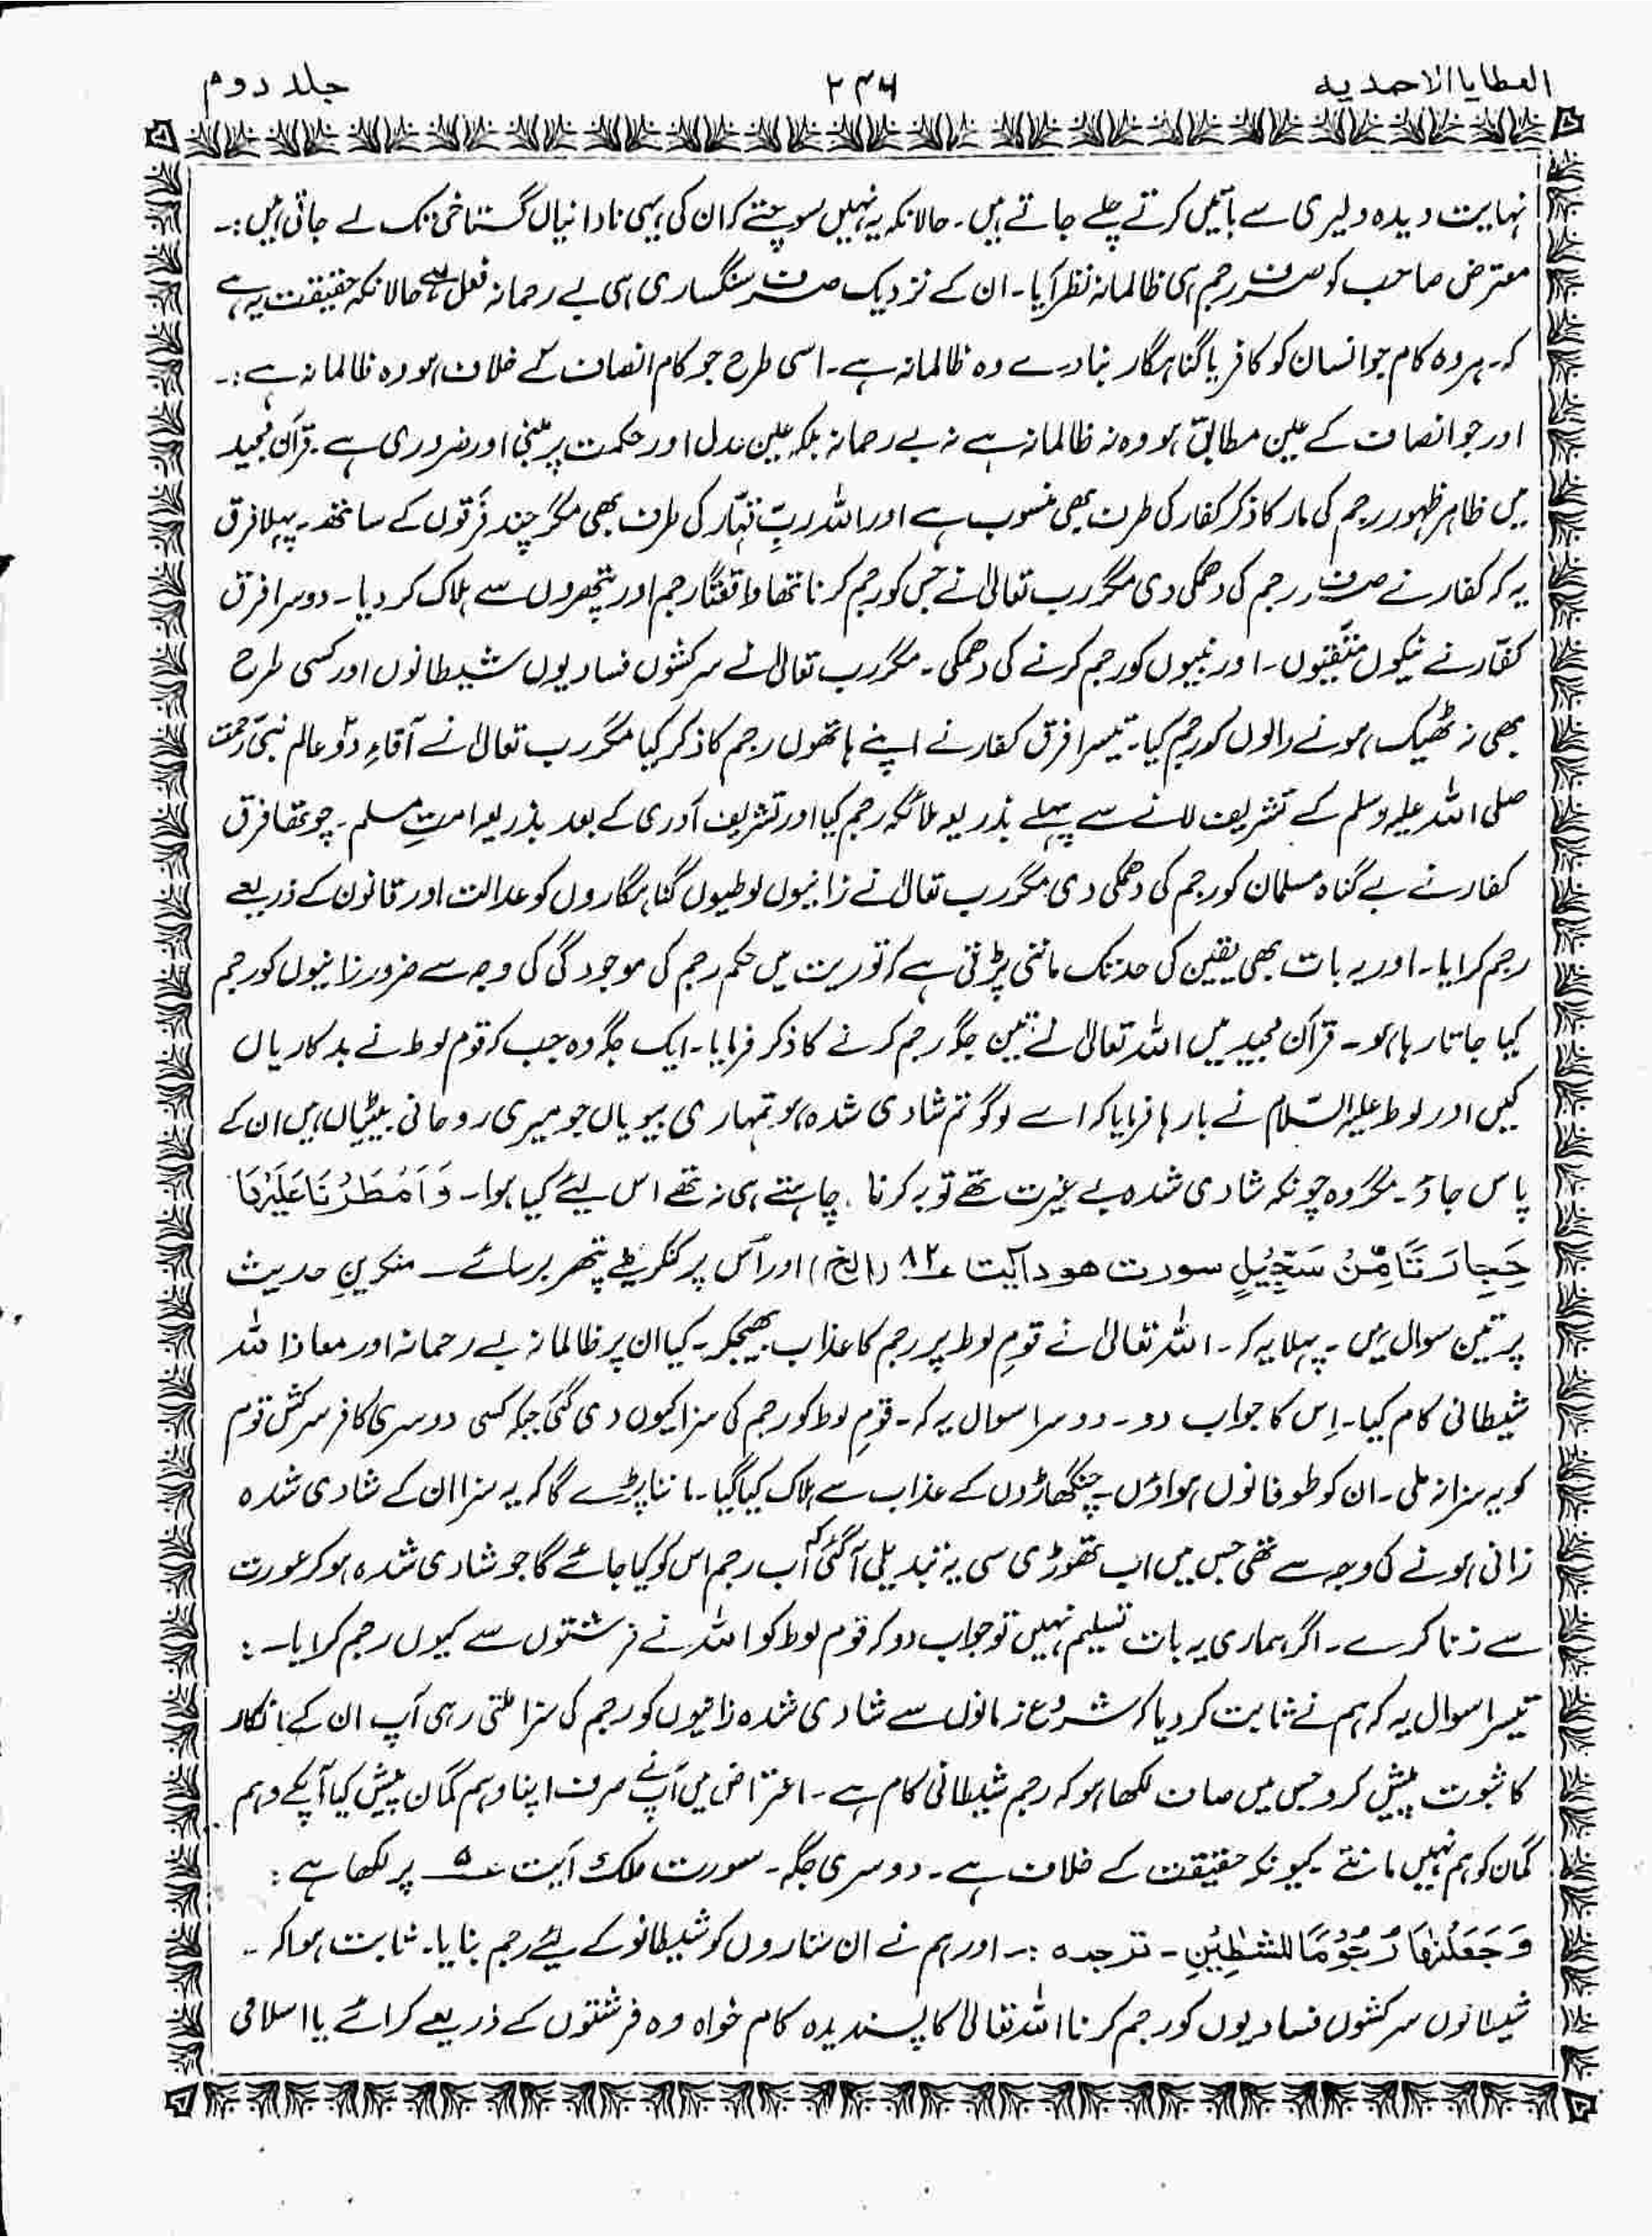 العطایا الاحمدیہ
۲۳۶
جلد دوم
نہایت دیدہ دلیری سے باتیں کرتے چلے جاتے ہیں۔ حالانکہ یہ نہیں سوچتے کہ ان کی یہی نادانیاں گستاخی تک لے جاتی ہیں:۔
معترض صاحب کو صرف رجم ہی ظالمانہ نظر آیا۔ ان کے نزدیک صرف سنگساری ہی بے رحمانہ فعل ہے حالانکہ حقیقت یہ ہے
کہ۔ ہر وہ کام جو انسان کو کافر یا گناہگار بنا دے وہ ظالمانہ ہے۔ اسی طرح جو کام انصاف کے خلاف ہو وہ ظالمانہ ہے:۔
اور جو انصاف کے عین مطابق ہو وہ نہ ظالمانہ ہے نہ بے رحمانہ بلکہ عین عدل اور حکمت پر مبنی اور ضروری ہے۔ قرآن مجید
میں ظاہر ظہور رجم کی مار کا ذکر کفار کی طرف بھی منسوب ہے اور اللہ ربِ قہّار کی طرف بھی مگر چند فرقوں کے ساتھ۔ پہلا فرق
یہ کہ کفار نے صرف رجم کی دھمکی دی مگر رب تعالیٰ نے جس کو رجم کرنا تھا واقعتًا رجم اور پتھروں سے ہلاک کر دیا۔ دوسرا فرق
کفّار نے نیکوں متقیوں۔ اور نبیوں کو رجم کرنے کی دھمکی۔ مگر رب تعالیٰ نے سرکشوں فسادیوں شیطانوں اور کسی طرح
بھی نہ ٹھیک ہونے والوں کو رجم کیا۔ تیسرا فرق کفار نے اپنے ہاتھوں رجم کا ذکر کیا مگر رب تعالیٰ نے آقاءِ دو عالم نبیِّ رحمت
صلی اللہ علیہ وسلم کے تشریف لانے سے پہلے بذریعہ ملائکہ رجم کیا اور تشریف آوری کے بعد بذریعہ امتِ مسلم۔ چوتھا فرق
کفار نے بے گناہ مسلمان کو رجم کی دھمکی دی مگر رب تعالیٰ نے زانیوں لوطیوں گناہگاروں کو عدالت اور قانون کے ذریعے
رجم کرایا۔ اور یہ بات بھی یقین کی حد تک ماننی پڑتی ہے کہ توریت میں حکم رجم کی موجودگی کی وجہ سے ضرور زانیوں کو رجم
کیا جاتا رہا ہو۔ قرآن مجید میں اللہ تعالیٰ نے تین جگہ رجم کرنے کا ذکر فرمایا۔ ایک جگہ وہ جب کہ قوم لوط نے بدکاریاں
کیں اور لوط علیہ السّلام نے بارہا فرمایا کہ اے لوگو تم شادی شدہ ہو تمہاری بیویاں جو میری روحانی بیٹیاں ہیں ان کے
پاس جاؤ۔ مگر وہ چونکہ شادی شدہ بے غیرت تھے توبہ کرنا چاہتے ہی نہ تھے اس لیئے کیا ہوا۔ وَاَمْطَرْنَا عَلَیْہَا
حِجَارَتًا مِّنْ سِجِّیْلٍ سورت ھود آیت ۸۲ (الخ) اور اُس پر کنکریلے پتھر برسائے۔ منکرینِ حدیث
پر تین سوال ہیں۔ پہلا یہ کہ۔ اللہ تعالیٰ نے قومِ لوط پر رجم کا عذاب بھیجکر۔ کیا ان پر ظالمانہ بے رحمانہ اور معاذ اللہ
شیطانی کام کیا۔ اِس کا جواب دو۔ دوسرا سوال یہ کہ۔ قومِ لوط کو رجم کی سزا کیوں دی گئی جبکہ کسی دوسری کافر سرکش قوم
کو یہ سزا نہ ملی۔ ان کو طوفانوں ہواؤں۔ چنگھاڑوں کے عذاب سے ہلاک کیا گیا۔ ماننا پڑے گا کہ یہ سزا ان کے شادی شدہ
زانی ہونے کی وجہ سے تھی جس میں اب تھوڑی سی یہ تبدیلی آگئی کہ اب رجم اس کو کیا جائے گا جو شادی شدہ ہو کر عورت
سے زنا کرے۔ اگر ہماری یہ بات تسلیم نہیں تو جواب دو کہ قوم لوط کو اللہ نے فرشتوں سے کیوں رجم کرایا۔:
تیسرا سوال یہ کہ ہم نے ثابت کر دیا کہ شروع زمانوں سے شادی شدہ زانیوں کو رجم کی سزا ملتی رہی آپ ان کے انکار
کا ثبوت پیش کرو جس میں صاف لکھا ہو کہ رجم شیطانی کام ہے۔ اعتراض میں آپ نے صرف اپنا وہم گمان پیش کیا آپکے وہم
گمان کو ہم نہیں مانتے کیونکہ حقیقت کے خلاف ہے۔ دوسری جگہ۔ سورت ملک آیت ۵ پر لکھا ہے:
وَجَعَلْنٰھَا رُجُوْمًا للشیٰطِیْنِ۔ ترجمہ:۔ اور ہم نے ان ستاروں کو شیطانو کے لیئے رجم بنایا۔ ثابت ہوا کہ۔
شیطانوں سرکشوں فسادیوں کو رجم کرنا اللہ تعالیٰ کا پسندیدہ کام خواہ وہ فرشتوں کے ذریعے کرائے یا اسلامی